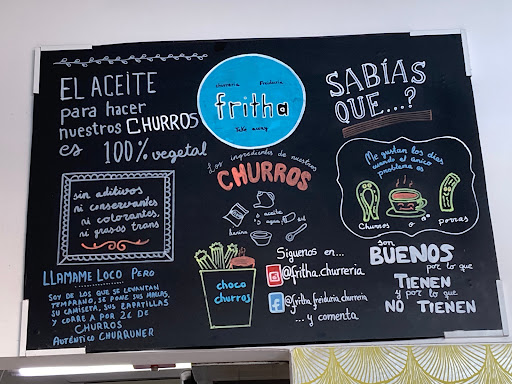 EL ACEITE
para hacer
nuestros CHURROS
es 100% vegetal
sin aditivos
ni conservantes
ni colorantes,
ni grasas trans
LLAMAME LOCO PERO
SOY DE LOS QUE SE LEVANTAN
TEMPRANO, SE PONE SUS MALLAS,
SU CAMISETA, SUS ZAPATILLAS
Y CORRE A POR 2€ DE
CHURROS
AUTÉNTICO CHURRUNER
churrería freiduría
fritha
take away
Los ingredientes de nuestros
CHURROS
harina
aceite
agua
sal
choco
churros
Síguenos en...
@fritha.churreria
@fritha.freiduria.churreria
... y comenta
SABÍAS
QUE...?
Me gustan los días
cuando el único
problema es
Churros o porras
son
BUENOS
por lo que
TIENEN
y por lo que
NO TIENEN